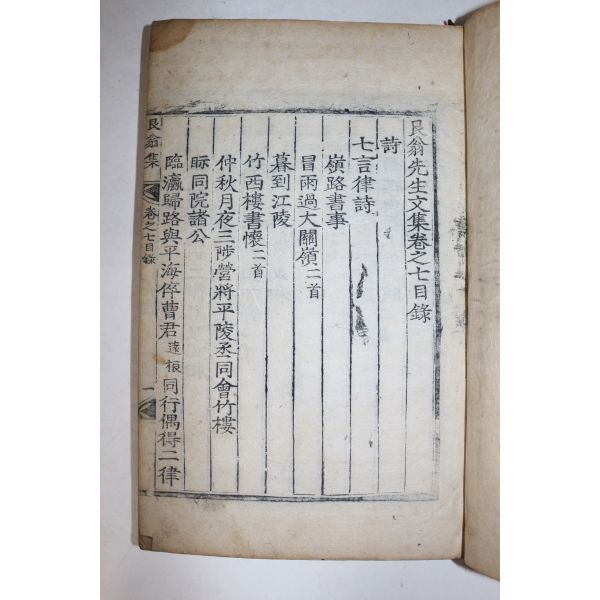 艮翁先生文集卷之七目錄
詩
七言律詩
嶺路書事
冒雨過大關嶺二首
暮到江陵
竹西樓書懷二首
仲秋月夜三陟營將平陵丞同會竹樓
眎同院諸公
臨瀛歸路與平海倅曹君遠振同行偶得二律
艮翁集
卷之七目錄
一